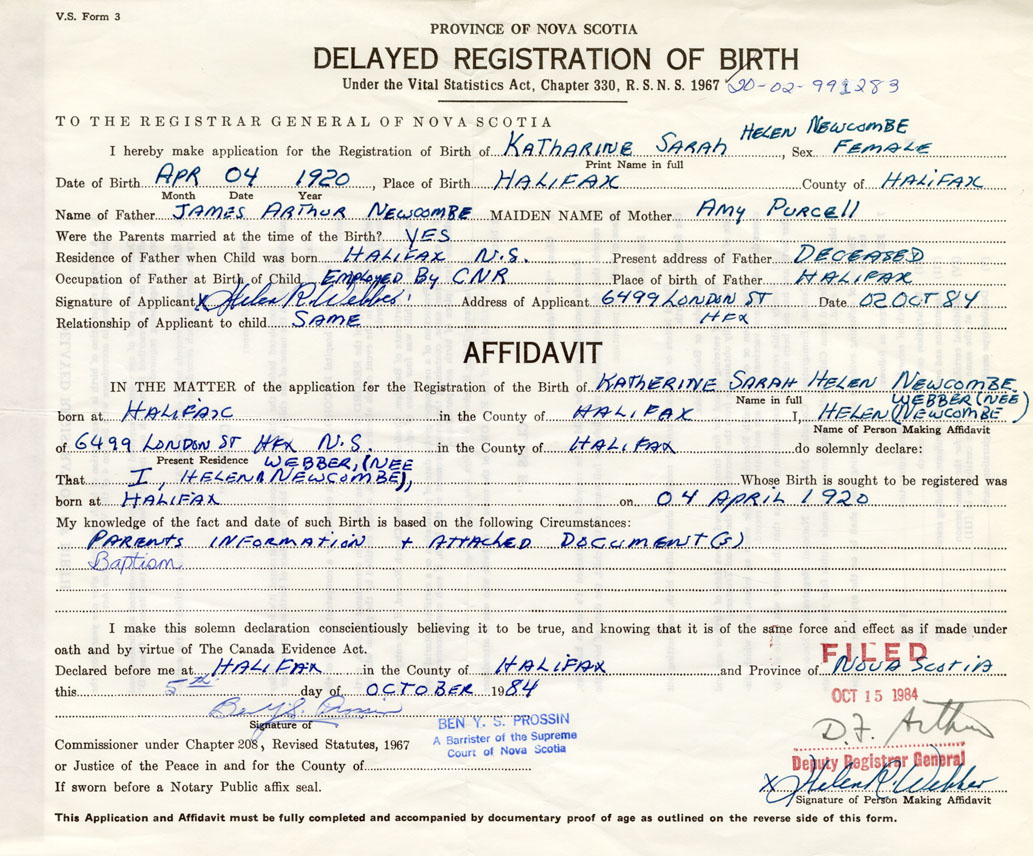 V.S. Form 3
PROVINCE OF NOVA SCOTIA
DELAYED REGISTRATION OF BIRTH
Under the Vital Statistics Act, Chapter 330, R.S.N.S. 1967 20-02-991283
TO THE REGISTRAR GENERAL OF NOVA SCOTIA
HELEN NEWCOMBE
I hereby make application for the Registration of Birth of KATHARINE SARAH, Sex FEMALE
Print Name in full
Date of Birth APR 04 1920, Place of Birth HALIFAX County of HALIFAX
Month Date Year
Name of Father JAMES ARTHUR NEWCOMBE MAIDEN NAME of Mother AMY PURCELL
Were the Parents married at the time of the Birth? YES
Residence of Father when Child was born HALIFAX N.S. Present address of Father DECEASED
Occupation of Father at Birth of Child EMPLOYED BY CNR Place of birth of Father HALIFAX
Signature of Applicant X Helen R. Webber Address of Applicant 6499 LONDON ST Date 02 OCT 84
Relationship of Applicant to child SAME HFX
AFFIDAVIT
IN THE MATTER of the application for the Registration of the Birth of KATHERINE SARAH HELEN NEWCOMBE
Name in full WEBBER (NEE
born at HALIFAX in the County of HALIFAX I, HELEN (NEWCOMBE)
Name of Person Making Affidavit
of 6499 LONDON ST HFX N.S. in the County of HALIFAX do solemnly declare:
Present Residence WEBBER, (NEE
That I, HELEN NEWCOMBE), Whose Birth is sought to be registered was
born at HALIFAX on 04 APRIL 1920
My knowledge of the fact and date of such Birth is based on the following Circumstances:
PARENTS INFORMATION + ATTACHED DOCUMENT(S)
Baptism
I make this solemn declaration conscientiously believing it to be true, and knowing that it is of the same force and effect as if made under
oath and by virtue of The Canada Evidence Act.
FILED
Declared before me at HALIFAX in the County of HALIFAX and Province of NOVA SCOTIA
this 5th day of OCTOBER 1984
OCT 15 1984
Ben Y.S. Prossin
Signature of
BEN Y. S. PROSSIN
A Barrister of the Supreme
Court of Nova Scotia
D.F. Arthur
Commissioner under Chapter 208, Revised Statutes, 1967
Deputy Registrar General
or Justice of the Peace in and for the County of
X Helen R. Webber
If sworn before a Notary Public affix seal.
Signature of Person Making Affidavit
This Application and Affidavit must be fully completed and accompanied by documentary proof of age as outlined on the reverse side of this form.